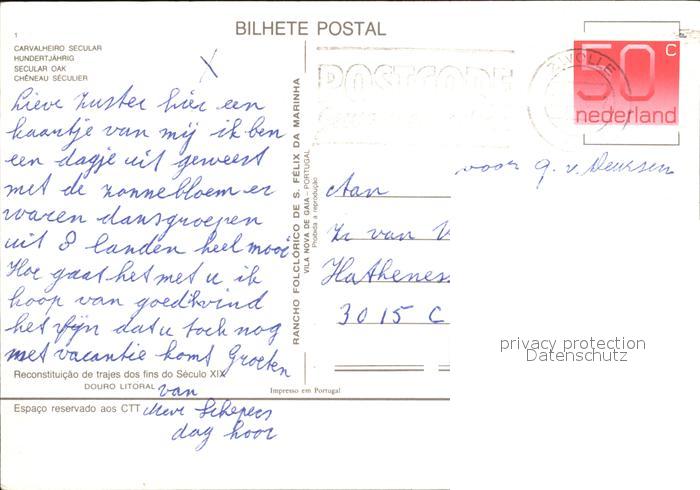 BILHETE POSTAL
1
CARVALHEIRO SECULAR
HUNDERTJÄHRIG
SECULAR OAK
CHÊNEAU SÉCULIER
X
Lieve Zuster hier een
kaantje van mij ik ben
een dagje uit geweest
met de zonnebloem er
waren dansgroepen
uit 8 landen heel mooi
Hoe gaat het met u ik
hoop van goed kvind
het fijn dat u toch nog
met vacantie komt Groeten
van
Mevr Schepers
dag hoor
Reconstituição de trajes dos fins do Século XIX
DOURO LITORAL
Espaço reservado aos CTT
Impresso em Portugal
RANCHO FOLCLÓRICO DE S. FÉLIX DA MARINHA
VILA NOVA DE GAIA - PORTUGAL
Proibida a reprodução
POSTCODE
ZWOLLE
50 c
nederland
voor g. v. Deursen
Aan
Zr van V
Hathenes
3015 C
privacy protection
Datenschutz